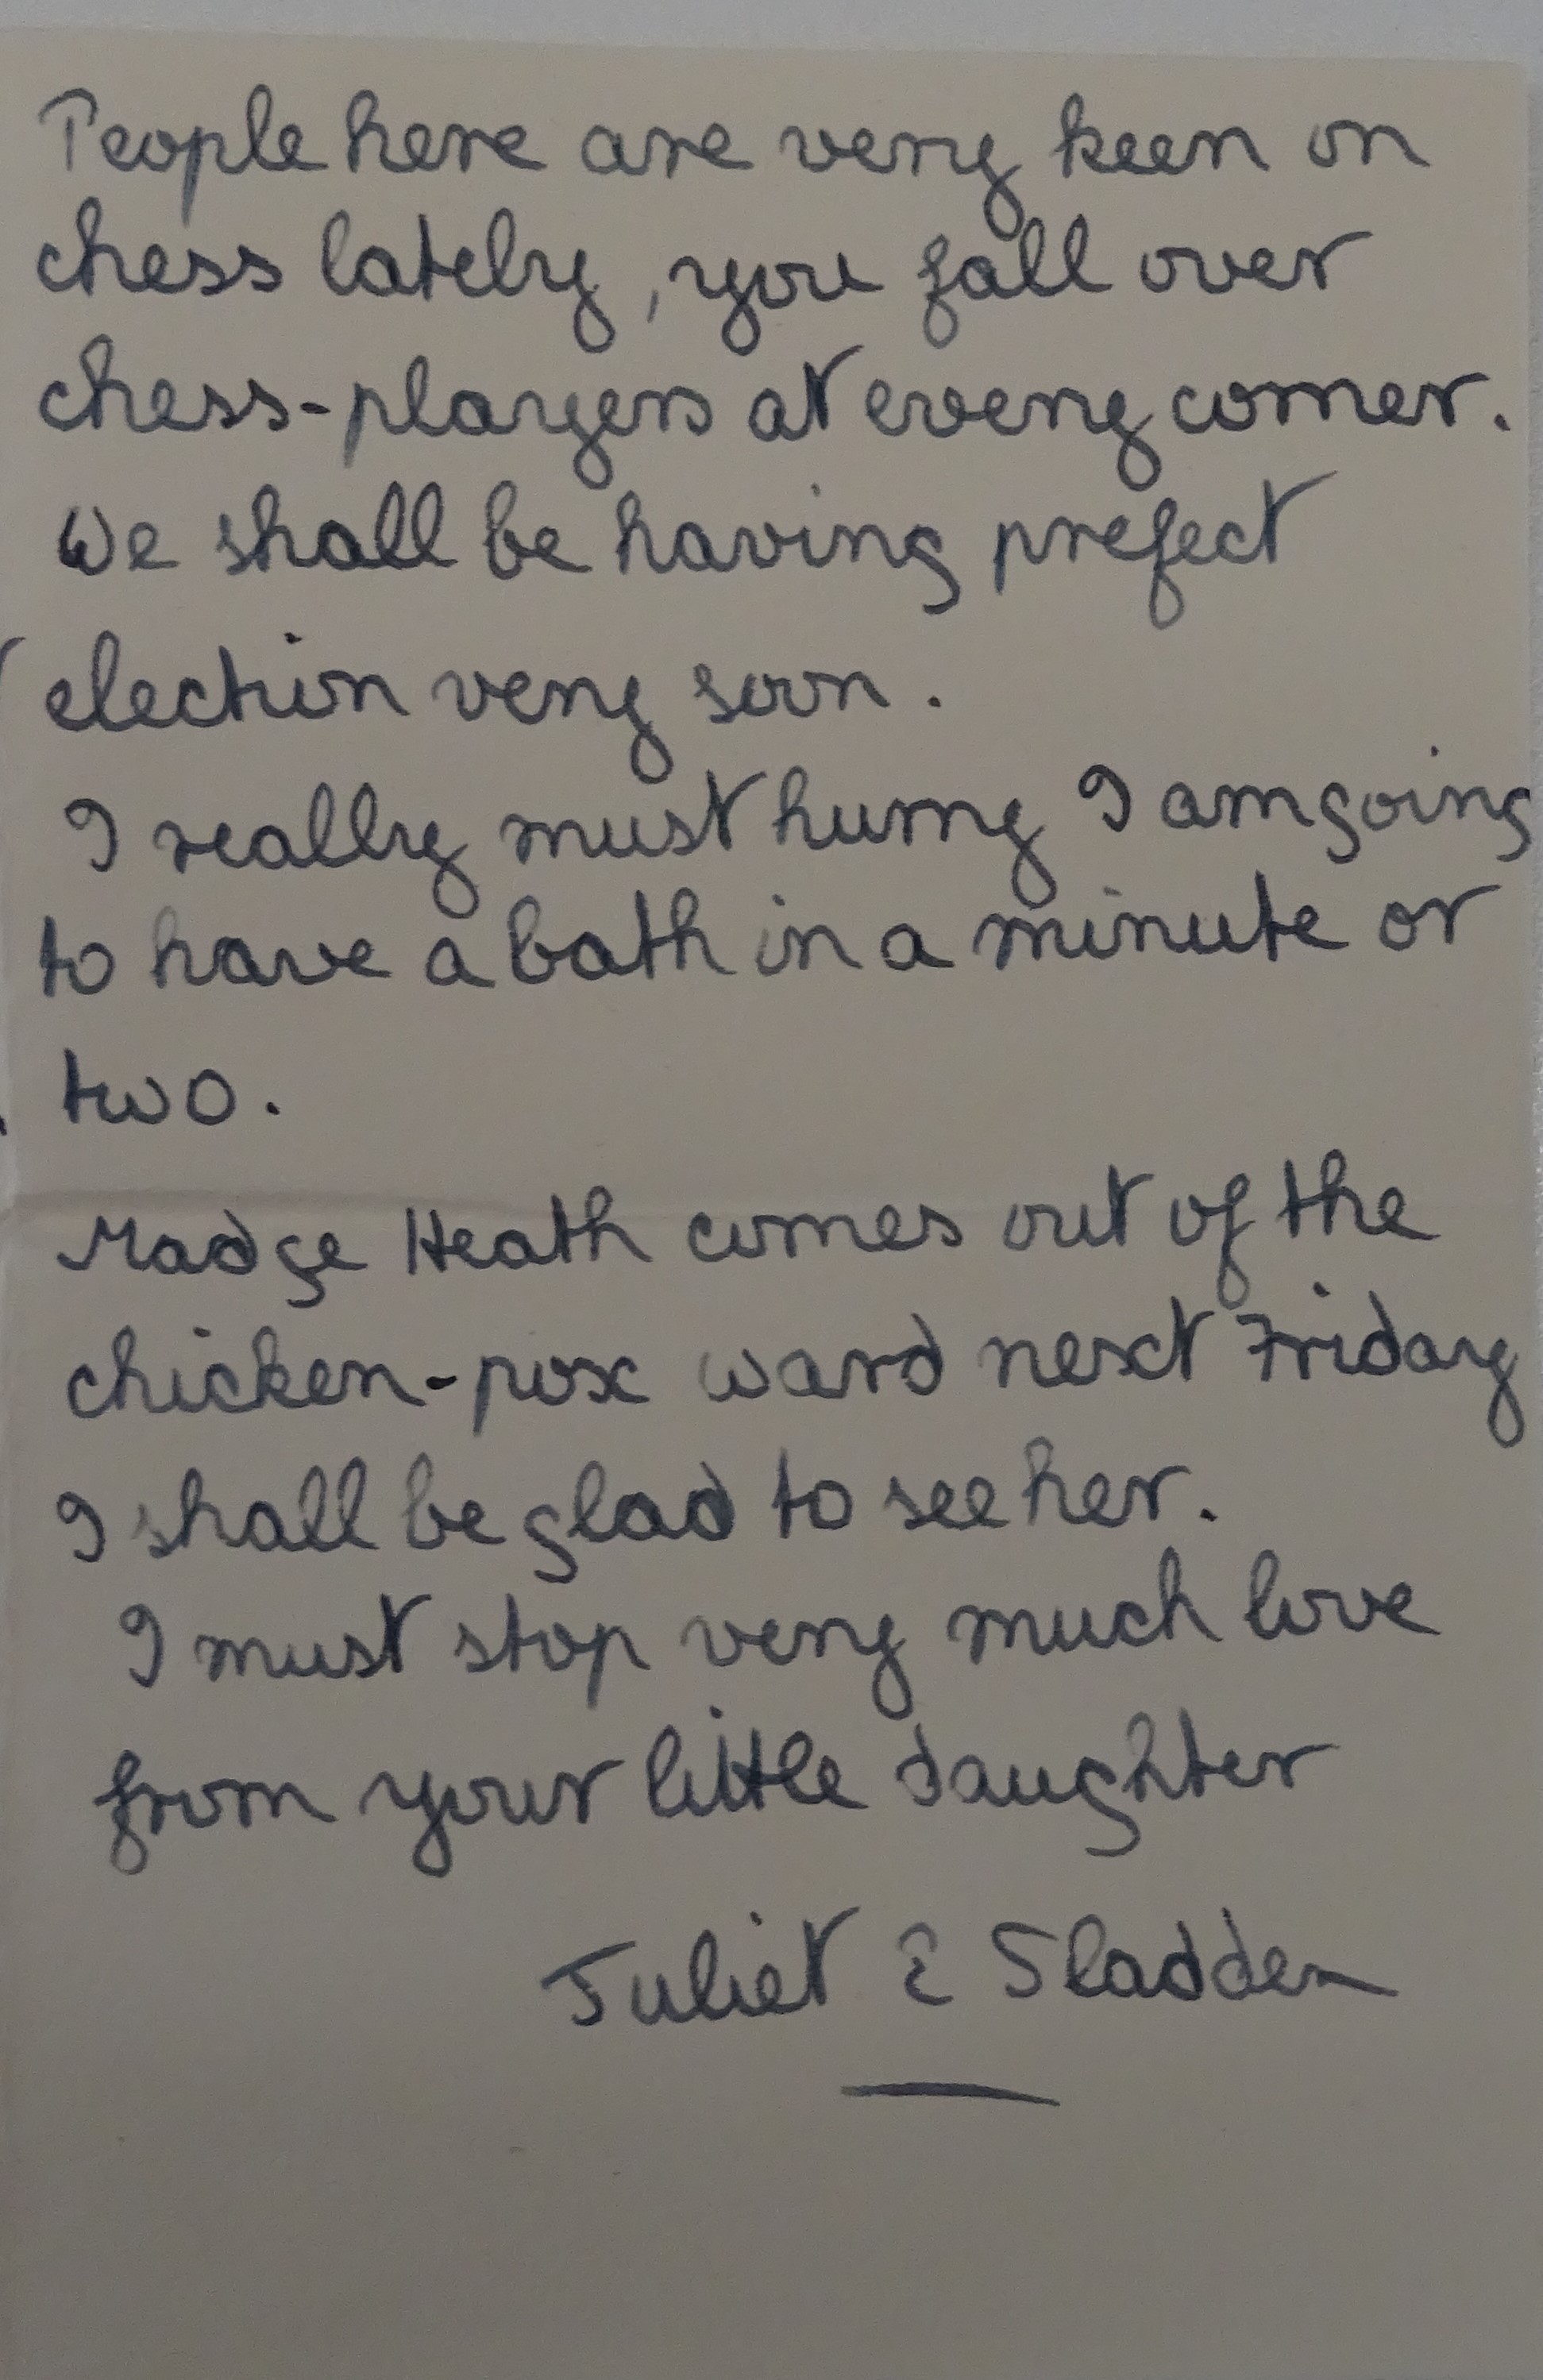 People here are very keen on
chess lately, you fall over
chess-players at every corner.
We shall be having prefect
election very soon.
I really must hurry I am going
to have a bath in a minute or
two.
Madge Heath comes out of the
chicken-pox ward next Friday
I shall be glad to see her.
I must stop very much love
from your little daughter
Juliet E Sladden